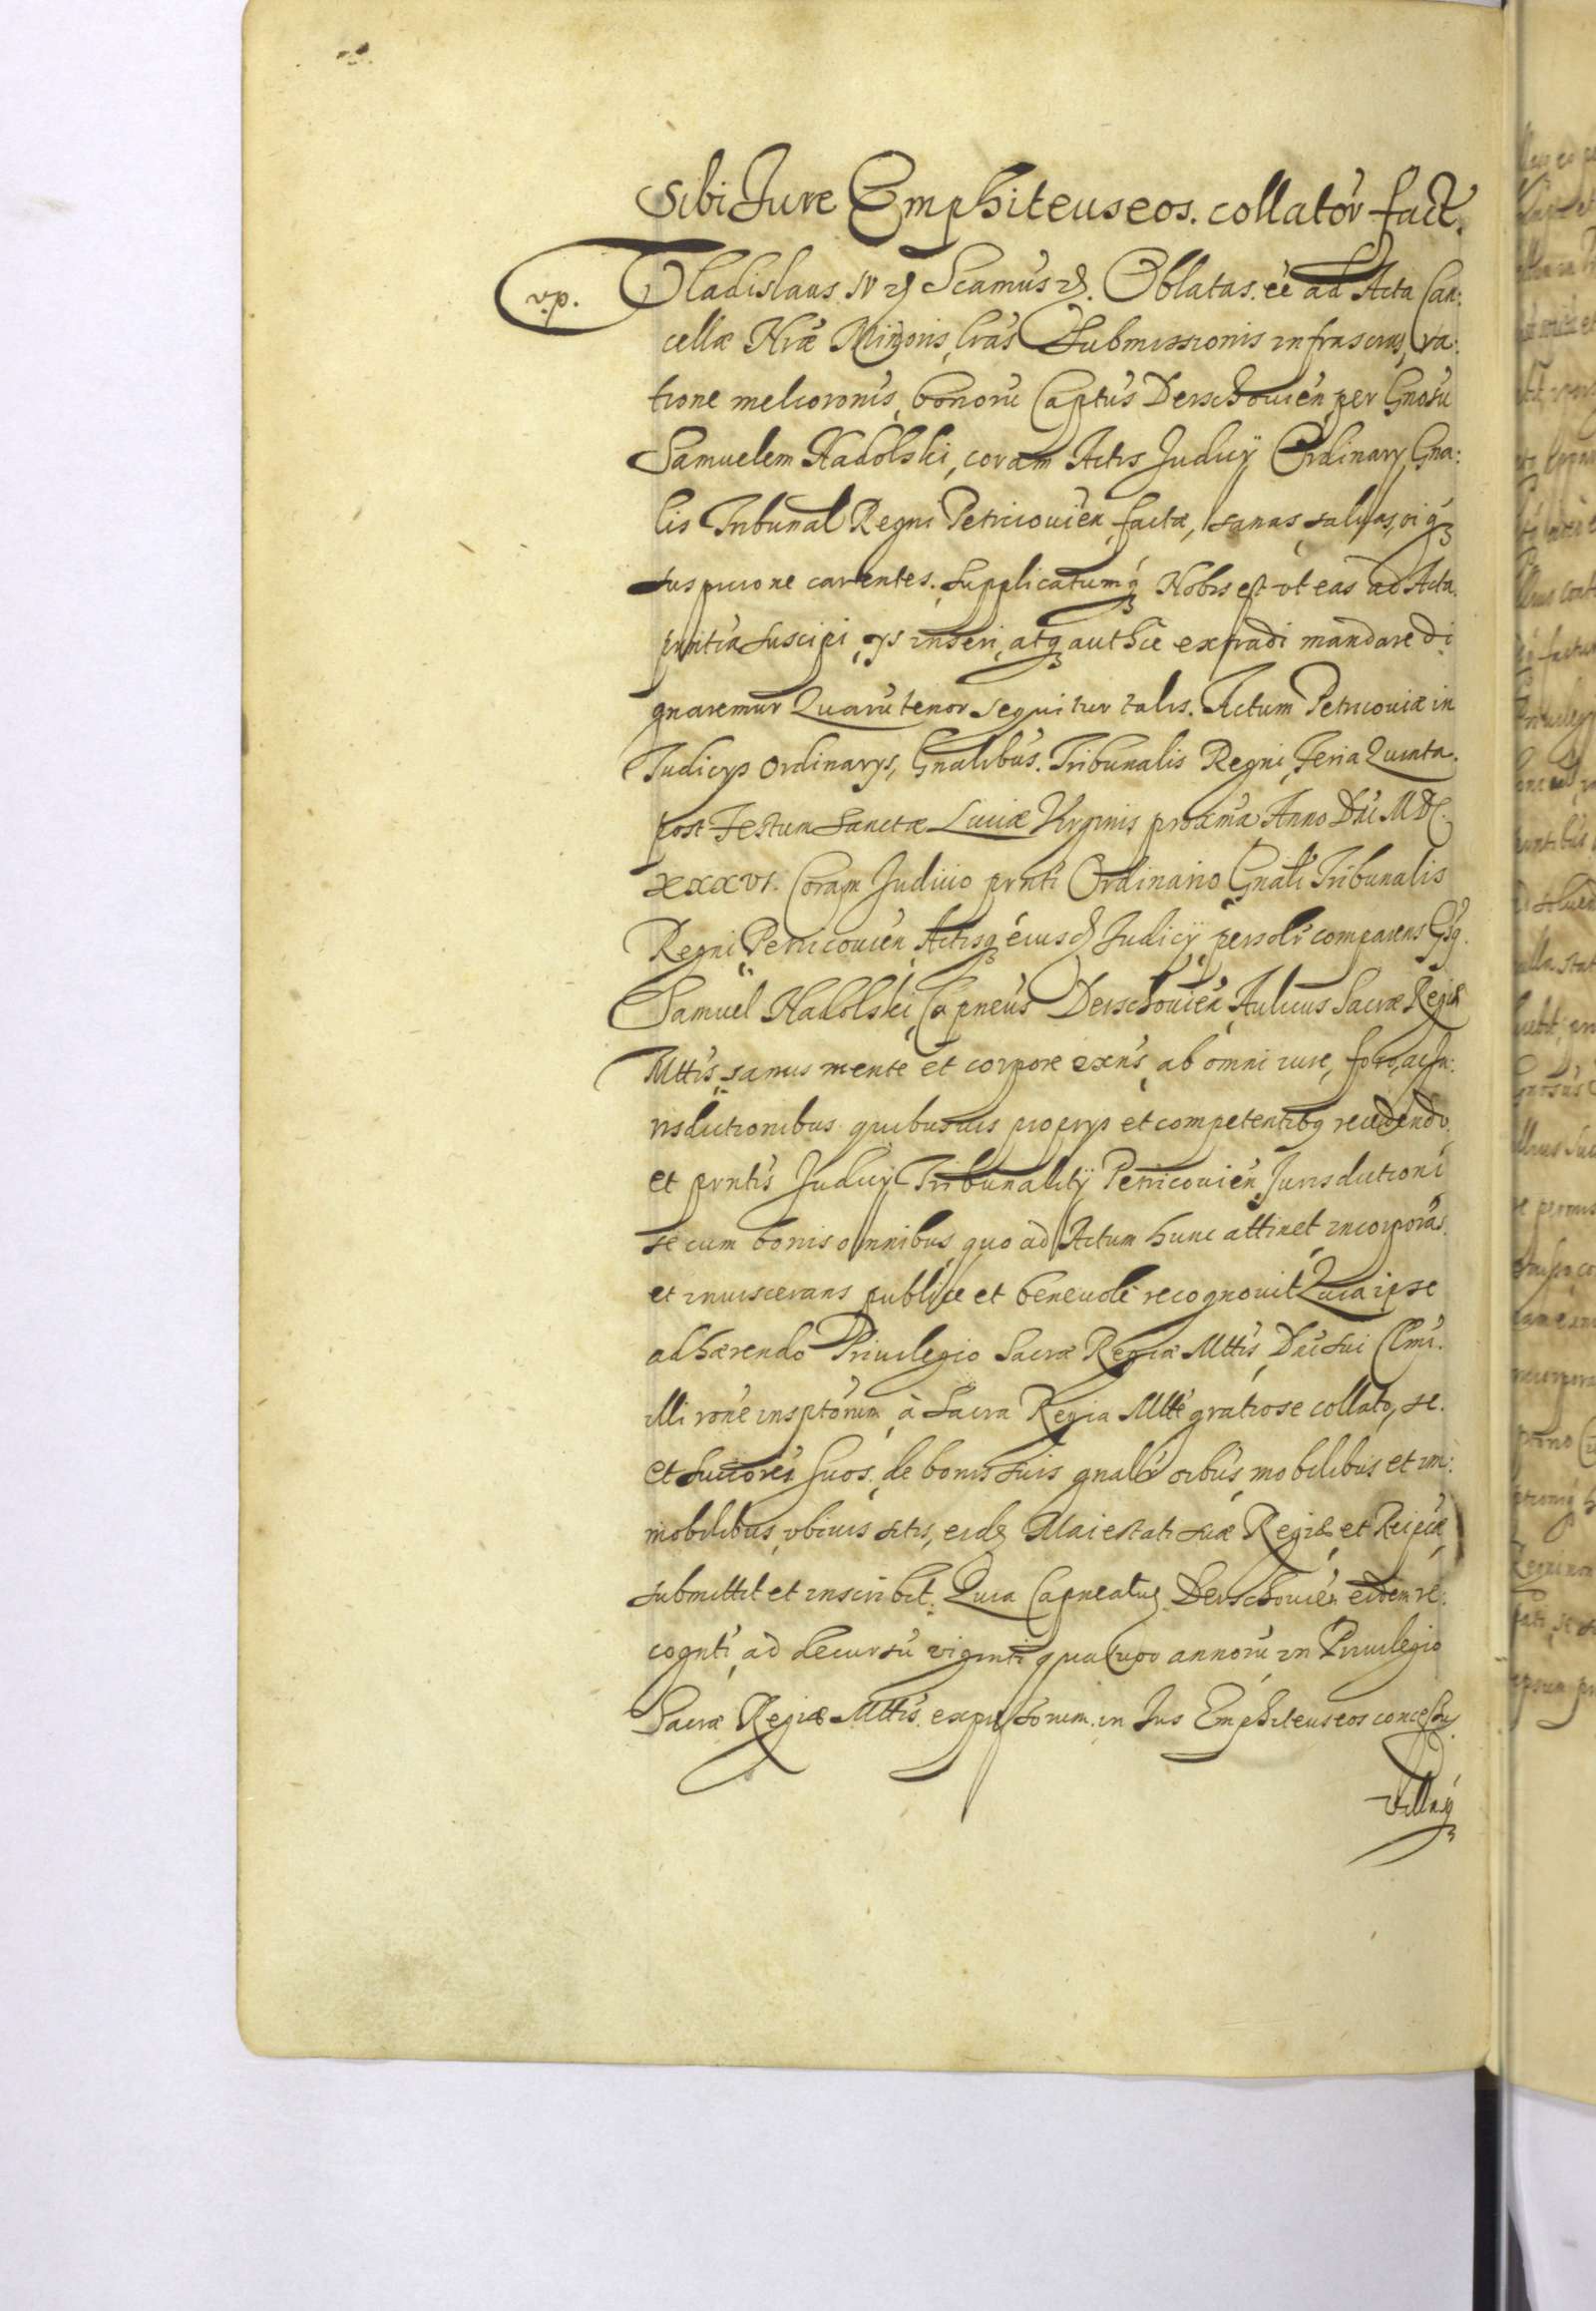 Sibi Jure Emphiteuseos. collator̃ fact.
v.p.
Vladislaus IV Scamus. Oblatas. eẽ ad Acta Can:
cellæ Nrã Minoris, lrãs Submissionis infrascrãs, ra:
tione melioronis, bonorũ Captus Derschouien, per Gnosũ
Samuelem Nadolski, coram Actis Judicÿ Ordinarÿ Gna:
lis Tribunal Regni Petricouien, factæ, sanas, saluas, oiq
suspicione carentes. Supplicatumq Nobis est vt eas ad Acta
prntia suscipi, ijs inseri, atq authcẽ extradi mandare di
gnaremur Quarũ tenor sequitur talis. Actum Petricouiæ in
Judicijs Ordinarijs, Gnalibus. Tribunalis Regni, Feria Quinta
post Festum Sanctæ Luciæ Virginis proxima Anno Dñi MDC.
XXXVI. Coram Judicio prnti Ordinario Gnali Tribunalis
Regni Petricouien, Actisq eiusd Judicÿ, persolr comparens Gsq
Samuel Nadolski, Capneus Derschouien, Aulicus Sacræ Regiæ
Mttis, sanus mente et corpore exñs, ab omni iure, foro, ac Ju:
risdictionibus quibusuis proprijs et competentibq recedendo,
et prntis Judicÿ Tribunalitÿ Petricouien, Jurisdictioni
se cum bonis omnibus, quo ad Actum hunc attinet incorporãs
et inuiscerans publice et beneuolè recognouit Quia ipse
adhærendo Priuilegio Sacræ Regiæ Mttis, Dñi sui Clmi.
illi ronẽ insptorum, à Sacra Regia Mtte gratiose collato, se.
et succores suos, de bonis suis gnalr oibus, mobilibus et im:
mobilibus, vbiuis sitis, eid Maiestati suæ Regiæ, et Reipcæ,
submittit et inscribit. Quia Capneatus Derschouien eidem re:
cognti, ad decursũ viginti quatuor annorũ in Priuilegio
Sacræ Regiæ Mttis. expssorum. in Jus Emphiteuseos concessus
villasq